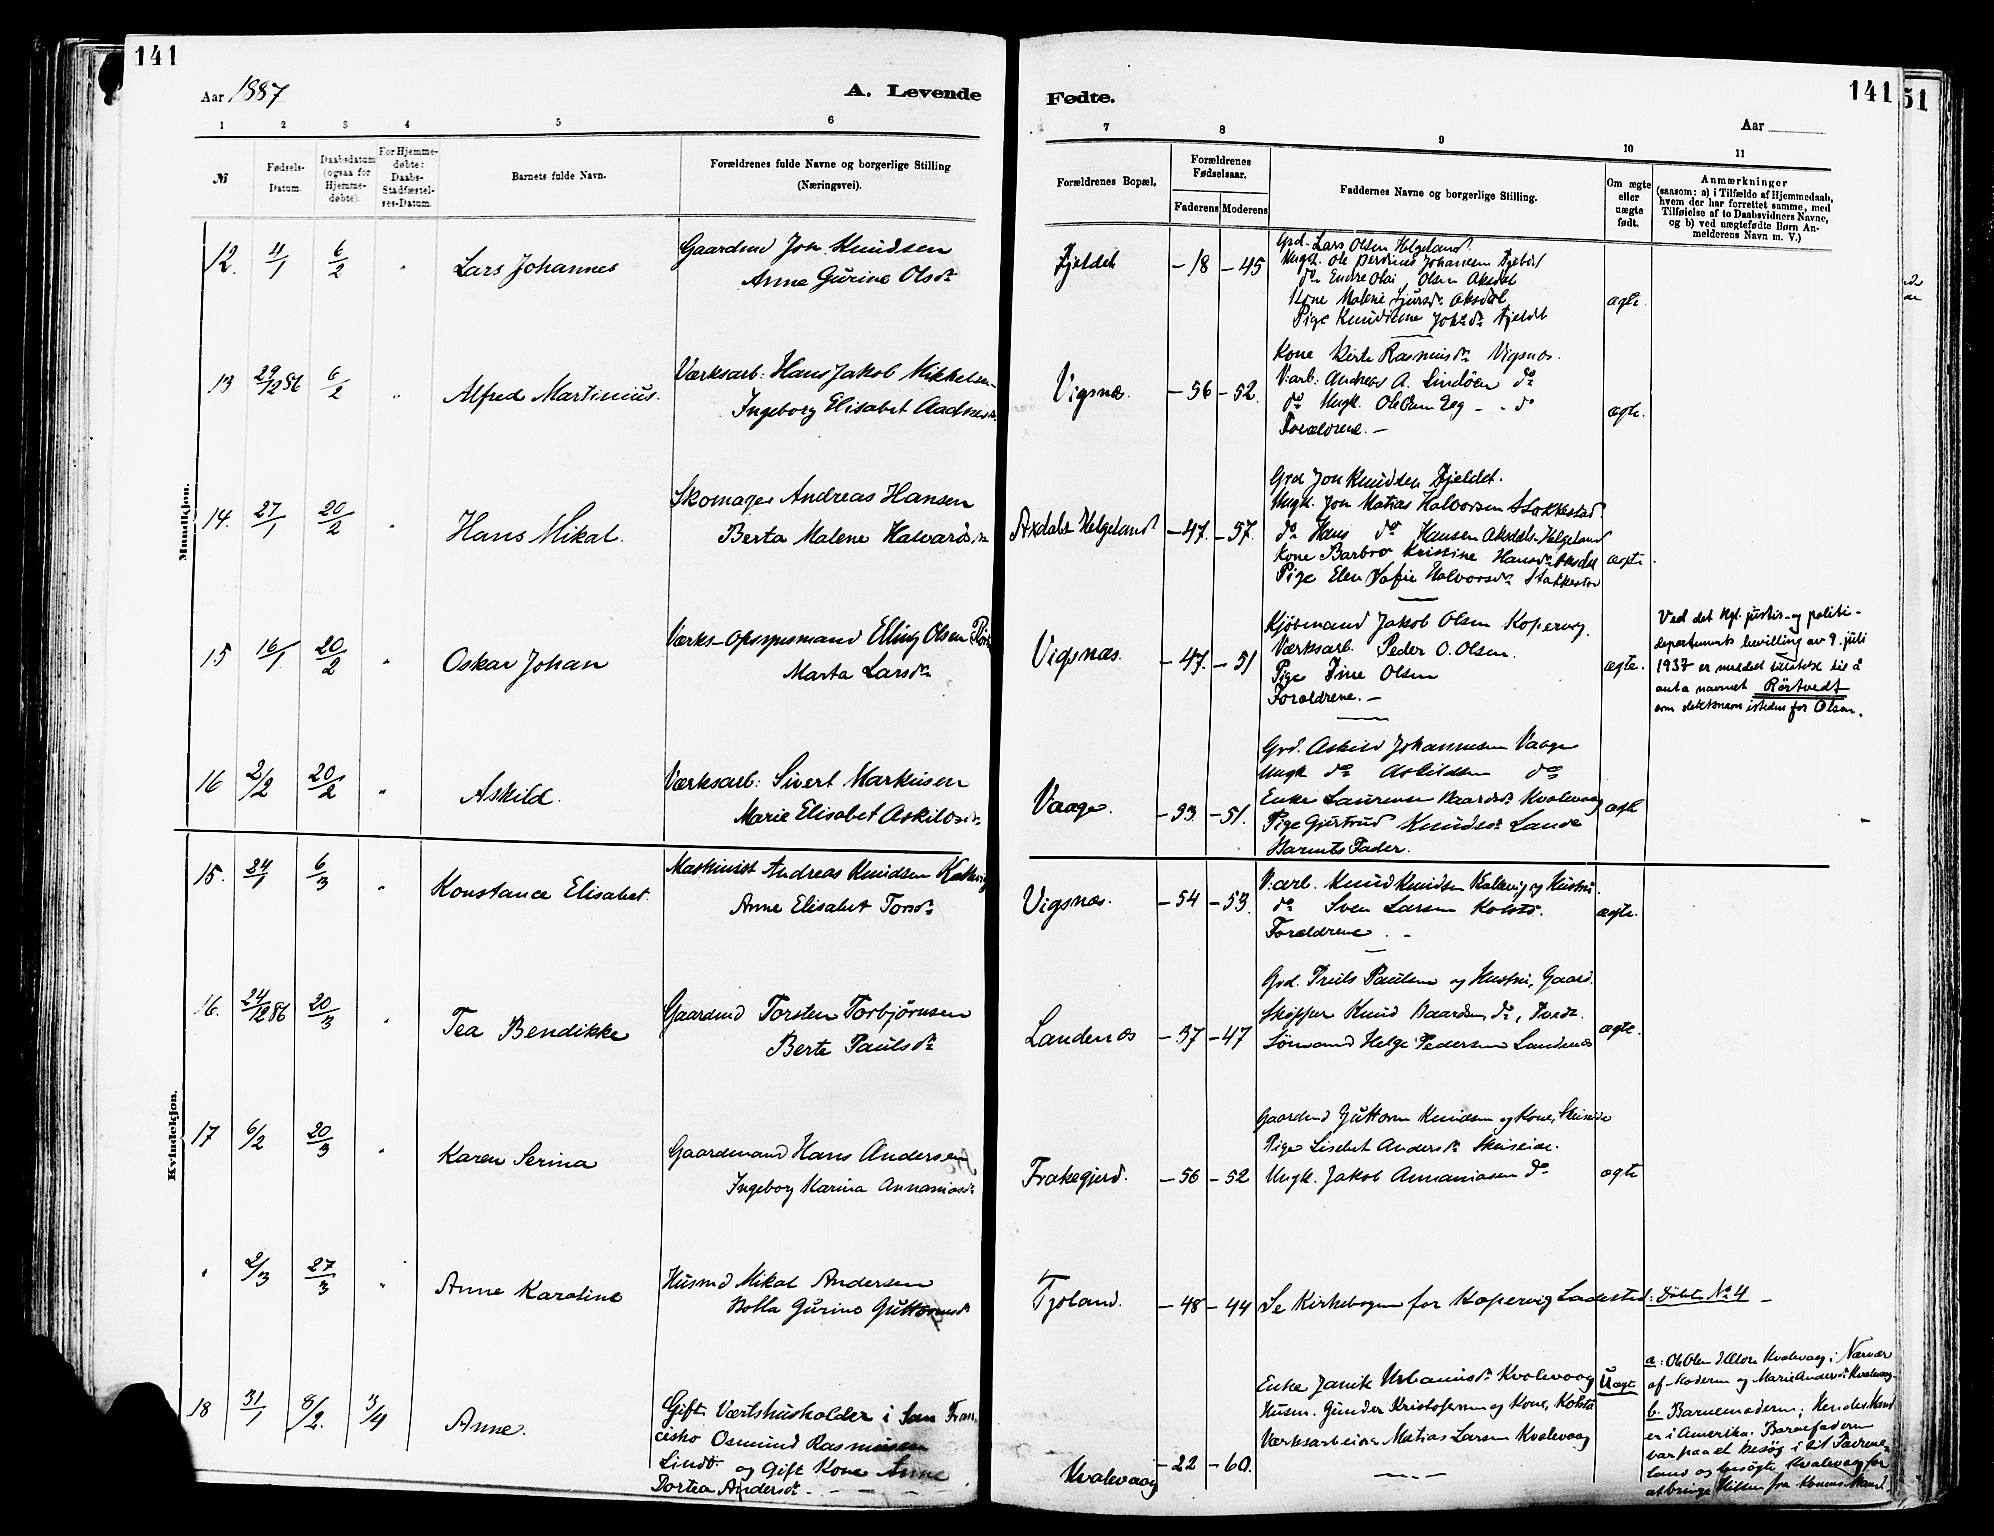 141
Aar 1887
A. Levende
1 2 3 4 5 6
№
Fødsels-Datum.
Daabsdatum (ogsaa for Hjemmedøbte).
For Hjemmedøbte: Daabs-Stadfæstelses-Datum.
Barnets fulde Navn.
Forældrenes fulde Navne og borgerlige Stilling
(Næringsvei).
Mandkjøn.
12. 4/1 6/2 " Lars Johannes
Gaardmd Jon Knudsen
Anne Gurine Olsdr
13 29/12 86 6/2 " Alfred Martinius.
Værksarb: Hans Jakob Mikkelsen
Ingeborg Elisabet Aadnesdr
14. 27/1 20/2 " Hans Mikal.
Skomager Andreas Hansen
Berta Malene Halvardsdr
15 16/1 20/2 " Oskar Johan
Værks-Opsynsmand Elling Olsen
Marta Larsdr
16 2/2 20/2 " Askild.
Værksarb: Sivert Markusen
Marie Elisabet Askildsdr
Kvindekjøn.
15. 24/1 6/3 " Konstance Elisabet.
Maskinist Andreas Knudsen
Anne Elisabet Torsdr
16. 24/12 86 20/3 " Tea Bendikke
Gaardmd Torsten Torbjørnsen
Berte Paulsdr
17 6/2 20/3 " Karen Serina
Gaardmand Hans Andersen
Ingeborg Karina Annaniasdr
" 2/3 27/3 " Anne Karoline
Husmd Mikal Andersen
Bolla Gurine Guttormsdr
18 31/1 8/2. 3/4 Anne.
Gift Værtshusholder i San Fran
cisko Osmund Rasmussen
Lindt. og Gift Kone Anne
Dortea Andersdr
141
51
Fødte.
Aar
7 8 9 10 11
Forældrenes Bopæl.
Forældrenes Fødselsaar.
Faderens Moderens
Faddernes Navne og borgerlige Stilling.
Om ægte eller uægte født.
Anmærkninger
(saasom: a) i Tilfælde af Hjemmedaab,
hvem der har forrettet samme, med
Tilføielse af to Daabsvidners Navne,
og b) ved uægtefødte Børn Anmelderens Navn m. V.)
Fjeldet – 18 – 45
Grd. Lars Olsen Helgeland.
Ungk. Ole Johansen
do Endre Olai Olsen Aksdal
Kone Malene Aksdal
Pige Knudsine Johsdr Fjeldet
ægte
Vigsnæs. – 56 – 52.
Kone Berte Rasmusdr Vigsnæs.
V.arb. Andreas A. Lindöen do
do Ungk. Ole Olsen Eeg do
Forældrene. –
ægte.
Axdals-Helgeland – 47. – 57.
Grd Jon Knudsen Fjeldet.
Ungk. Jon Matias Halvorsen Stokkestad.
do Hans do Hansen Aksdals-Helgeland
Kone Barbro Kristine Hansdr Aksdal
Pige Elen Sofie Halvorsdr Stokkestad
ægte
Vigsnæs. – 47. – 51
Kjøbmand Jakob Olsen Kopervig.
Værksarb. Peder O. Olsen.
Pige Olsen
Forældrene. –
ægte.
Ved det kgl. justis- og politi-
departements bevilling av 9. juli
1937 er meddelt tillatelse til å
anta navnet Rörtvedt
som slektsnavn istedenfor Olsen.
Vaage. – 53. – 51.
Grd. Askild Johannesen Vaage
Ungk do Askildsen do
Enke Laurense Baardsdr Kvalevaag
Pige Gjertrud Knudsdr Lande
Barnets Fader.
ægte
Vigsnæs. – 54 – 53.
V.arb. Knud Knudsen Kalvig og Hustru.
do Sven Larsen Kolstø.
Forældrene.
ægte.
Landenæs – 37 – 47
Grd. Truls Paulsen og Hustru, Gaard.
Skipper Knud Baardsen, do,
Sömand Helge Pedersen Landenæs
ægte.
Frakegjerd. – 56 – 52
Gaardmd Guttorm Knudsen og Kone,
Pige Lisebet Andersdr
Ungk. Jakob Annaniasen do
ægte
Tjoland. – 48 – 44
Se Kirkebogen for Kopervig Ladested: Döbte No 4 –
Kvalevaag – 22 – 60.
Enke Janik Urbanusdr Kvalevaag
Husm. Gunder Kristofersen og Kone, Kolstø
Værksarbeider Matias Larsen Kvalevaag
Uægte
a: Ole Olsen Kvalevaag i Nærvær
af Moderen og Marie Andersdr Kvalevaag.
b. Barnemoderen; Hendes Mand
er i Amerika. Barnefaderen
var paa et Besøg i sit Fædrene-
land og besøgte Kvalevaag for
at bringe Hilsen fra Konens Mand.